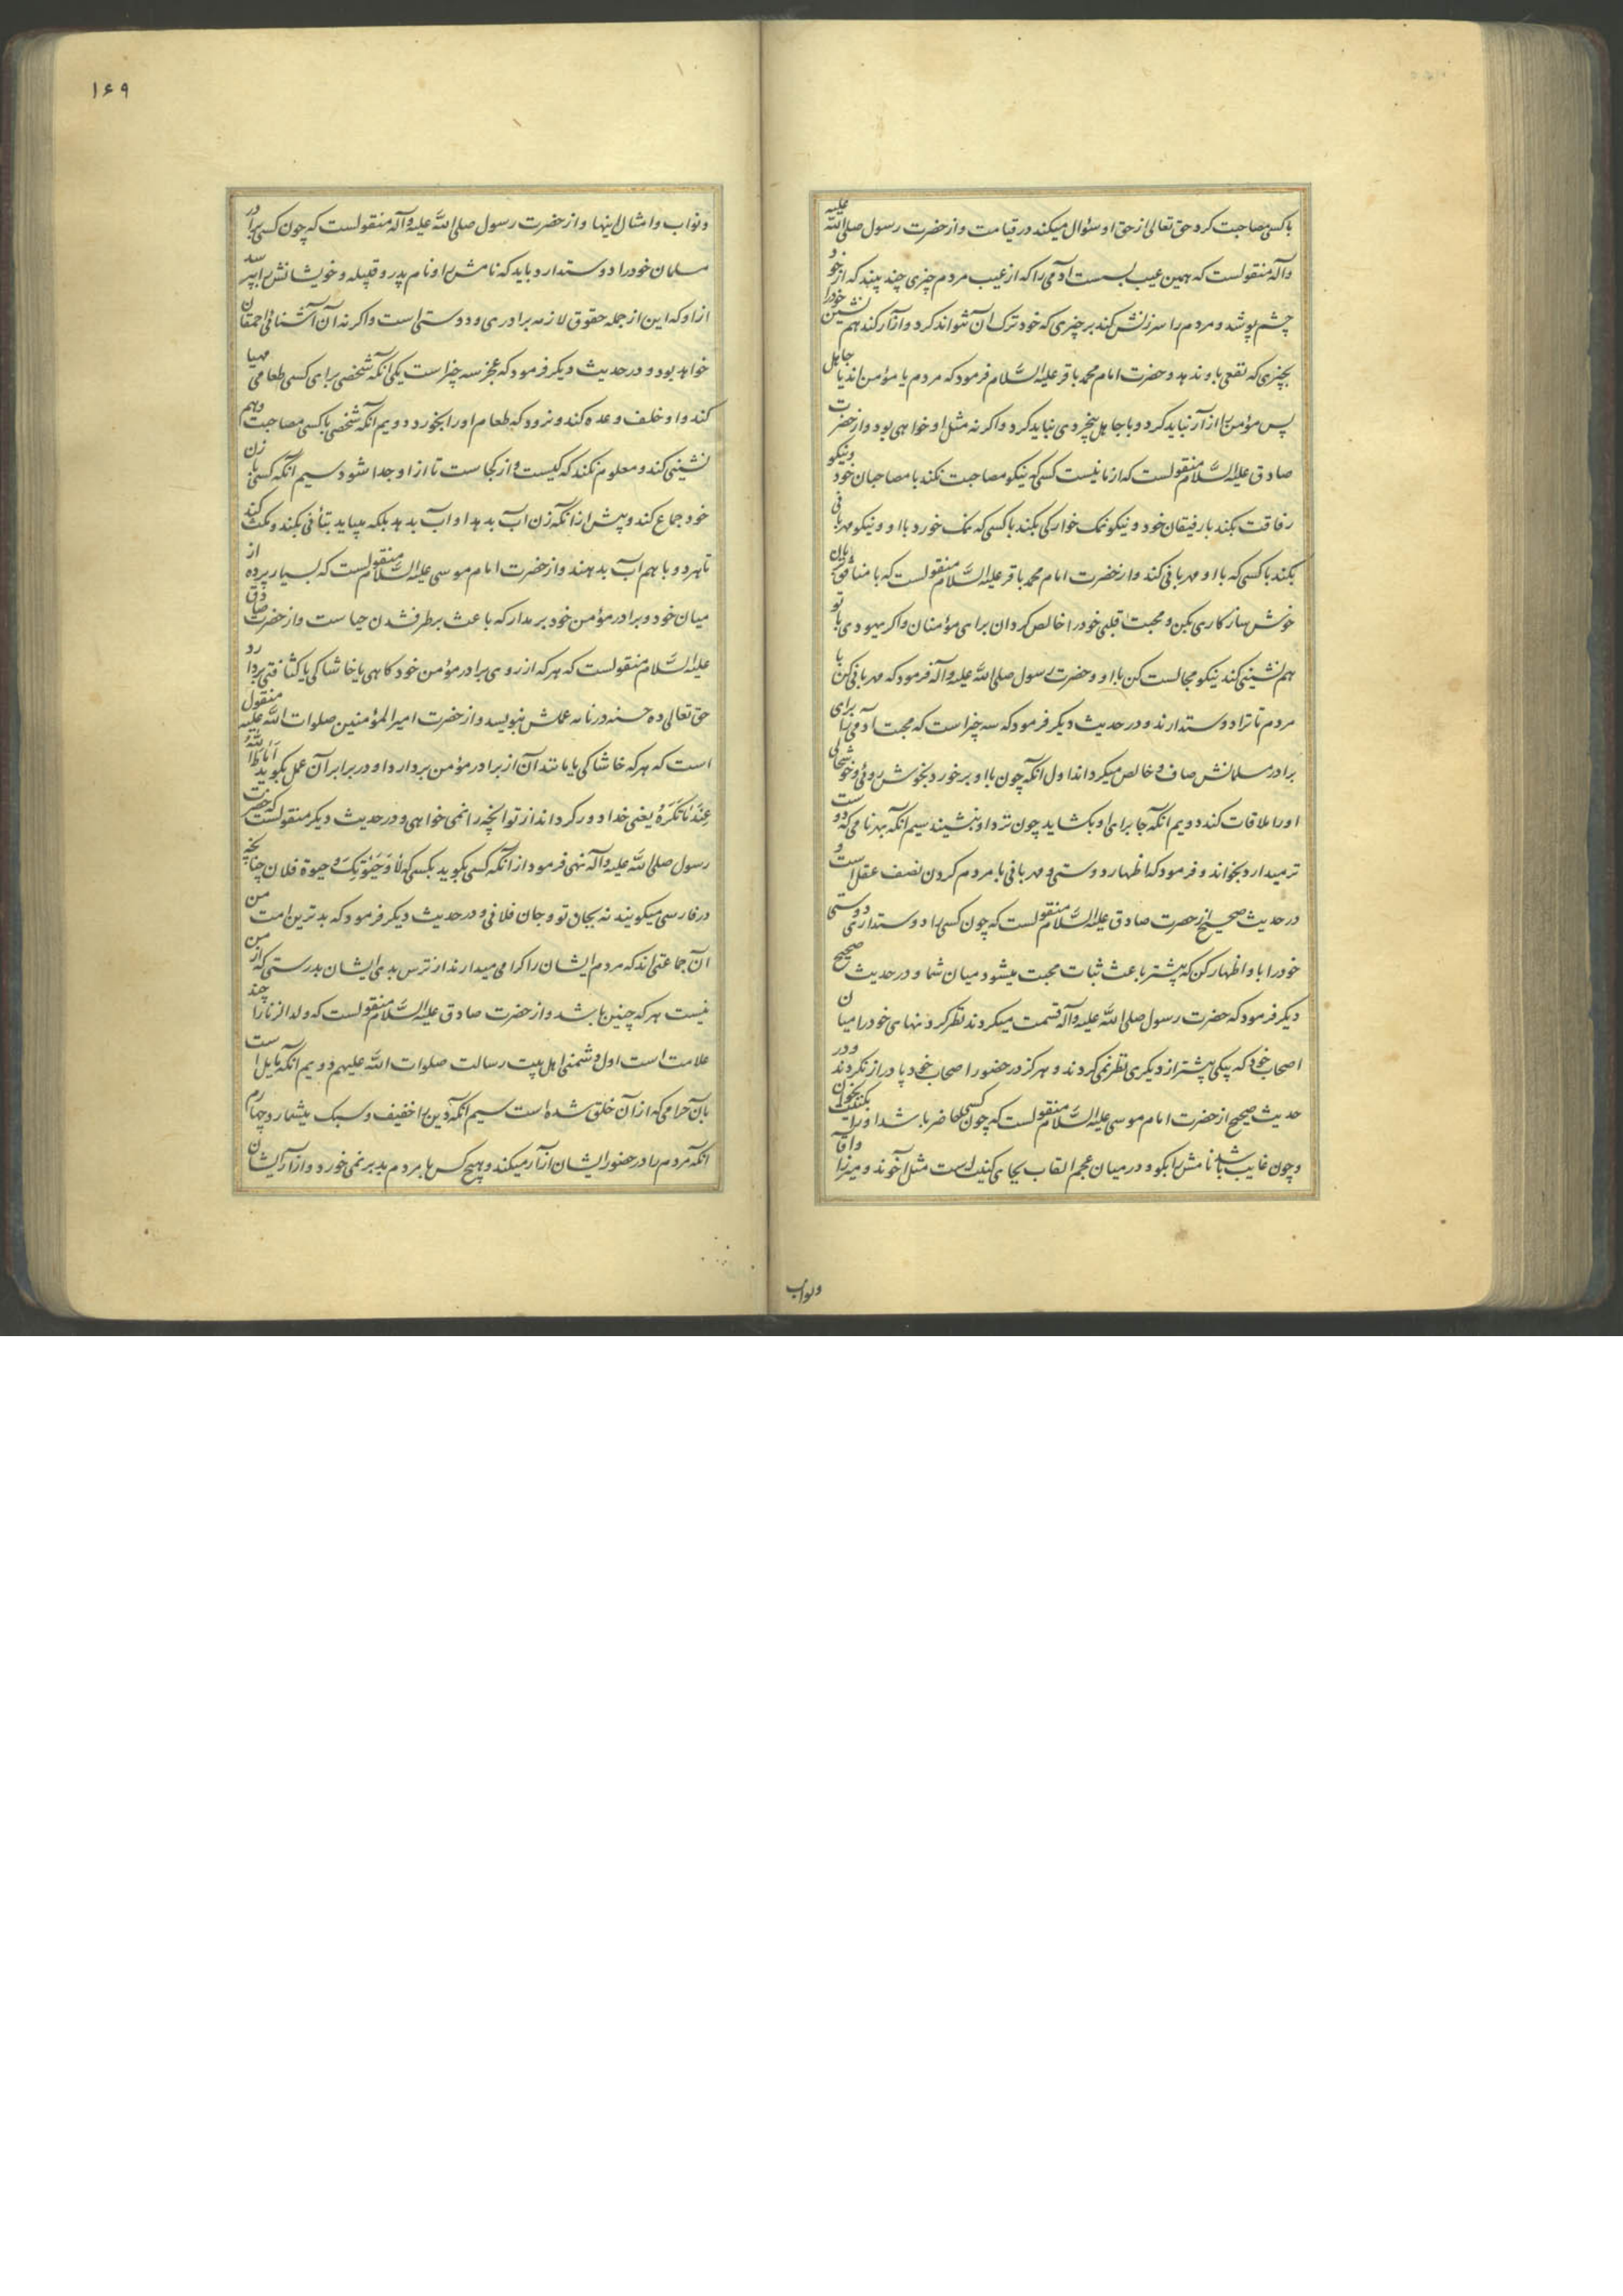 باکسی مصاحبت کرد حق تعالی از حق او سئوال میکند در قیامت و از حضرت رسول صلی الله علیه
وآله منقولست که همین عیب بس است آدمی را که از عیب مردم چیزی چند بیند که از خود
چشم پوشد و مردم را سرزنش کند بر چیزی که خود ترک آن نتواند کرد و آزار کند هم نشین خود را
بچیزی که نفعی باو ندهد و حضرت امام محمد باقر علیه السلام فرمود که مردم یا مؤمن اند یا جاهل
پس مؤمن را آزار نباید کرد و با جاهل بیخردی نباید کرد و اگر نه مثل او خواهی بود و از حضرت
صادق علیه السلام منقولست که از ما نیست کسی که نیکو مصاحبت نکند با مصاحبان خود و نیکو
رفاقت بکند با رفیقان خود و نیکو نمک خوارکی بکند باکسی که نمک خورد با او و نیکو مهربانی
بکند باکسی که با او مهربانی کند و از حضرت امام محمد باقر علیه السلام منقولست که با منافق بزبان
خوش سازکاری بکن و محبت قلبی خود را خالص کردان برای مؤمنان و اکر یهودی با تو
هم نشینی کند نیکو مجالست کن با او و حضرت رسول صلی الله علیه وآله فرمود که مهربانی کن با
مردم تا ترا دوست دارند و در حدیث دیکر فرمود که سه چیز است که محبت آدمی را برای
برادر مسلمانش صاف و خالص میکرداند اول آنکه چون با او برخورد بخوش روئی و خوشحالی
او را ملاقات کند دویم آنکه جا برای او بکشاید چون نزد او بنشیند سیم آنکه بهر نامی که دوست
تر میدارد بخواند و فرمود که اظهار دوستی و مهربانی با مردم کردن نصف عقل است و
در حدیث صحیح از حضرت صادق علیه السلام منقولست که چون کسی را دوست داری دوستی
خود را باو اظهار کن که بیشتر باعث ثبات محبت میشود میان شما و در حدیث صحیح
دیکر فرمود که حضرت رسول صلی الله علیه وآله قسمت میکردند نظر کردنهای خود را میان
اصحاب خود که بیکی بیشتر از دیکری نظر نمی کردند و هرکز در حضور اصحاب خود پا دراز نکردند و در
حدیث صحیح از حضرت امام موسی علیه السلام منقولست که چون کسی حاضر باشد او را بکنیت بخوان
و چون غایب باشد نامش را بکو و در میان عجم القاب بجای کنیت است مثل آخوند و میرزا و آقا
ونواب
۱۶۹
و نواب و امثال اینها و از حضرت رسول صلی الله علیه وآله منقولست که چون کسی برادر
مسلمان خود را دوست دارد باید که نامش را و نام پدر و قبیله و خویشانش را بپرسد
از او که این از جمله حقوق لازمه برادری و دوستی است و اکر نه آن آشنائی احمقان
خواهد بود و در حدیث دیکر فرمود که عجز سه چیز است یکی آنکه شخصی برای کسی طعامی مهیا
کند و او خلف وعده کند و نرود که طعام او را بخورد دویم آنکه شخصی با کسی مصاحبت و هم
نشینی کند و معلوم نکند که کیست و از کجاست تا از او جدا شود سیم آنکه کسی با زن
خود جماع کند و پیش از آنکه زن آب بدهد او آب بدهد بلکه میباید بتأنی بکند و مکث کند
تا هر دو با هم آب بدهند و از حضرت امام موسی علیه السلام منقولست که بسیار پرده از
میان خود و برادر مؤمن خود بر مدار که باعث برطرف شدن حیاست و از حضرت صادق
علیه السلام منقولست که هر که از روی برادر مؤمن خود کاهی یا خاشاکی یا کثافتی بردارد
حق تعالی ده حسنه در نامه عملش بنویسد و از حضرت امیرالمؤمنین صلوات الله علیه منقول
است که هر که خاشاکی یا مانند آن از برادر مؤمن بردارد او در برابر آن عمل بکوید اَماطَ اللهُ
عَنکَ ما تَکرَهُ یعنی خدا دور کرداند از تو آنچه را نمی خواهی و در حدیث دیکر منقولست که حضرت
رسول صلی الله علیه وآله نهی فرمود از آنکه کسی بکوید بکسی که لا وَحَیٰوتِکَ و حیوة فلان چنانچه
در فارسی میکویند نه بجان تو و جان فلانی و در حدیث دیکر فرمود که بدترین امت من
آن جماعتی اند که مردم ایشان را کرامی میدارند از ترس بدی ایشان بدرستی که از من
نیست هر که چنین باشد و از حضرت صادق علیه السلام منقولست که ولد الزنا را چند
علامت است اول دشمنی اهل بیت رسالت صلوات الله علیهم دویم آنکه مایل است
بآن حرامی که از آن خلق شده است سیم آنکه دین را خفیف و سبک میشمارد چهارم
آنکه مردم را در حضور ایشان آزار میکند و هیچ کس با مردم بد بر نمی خورد و آزار ایشان